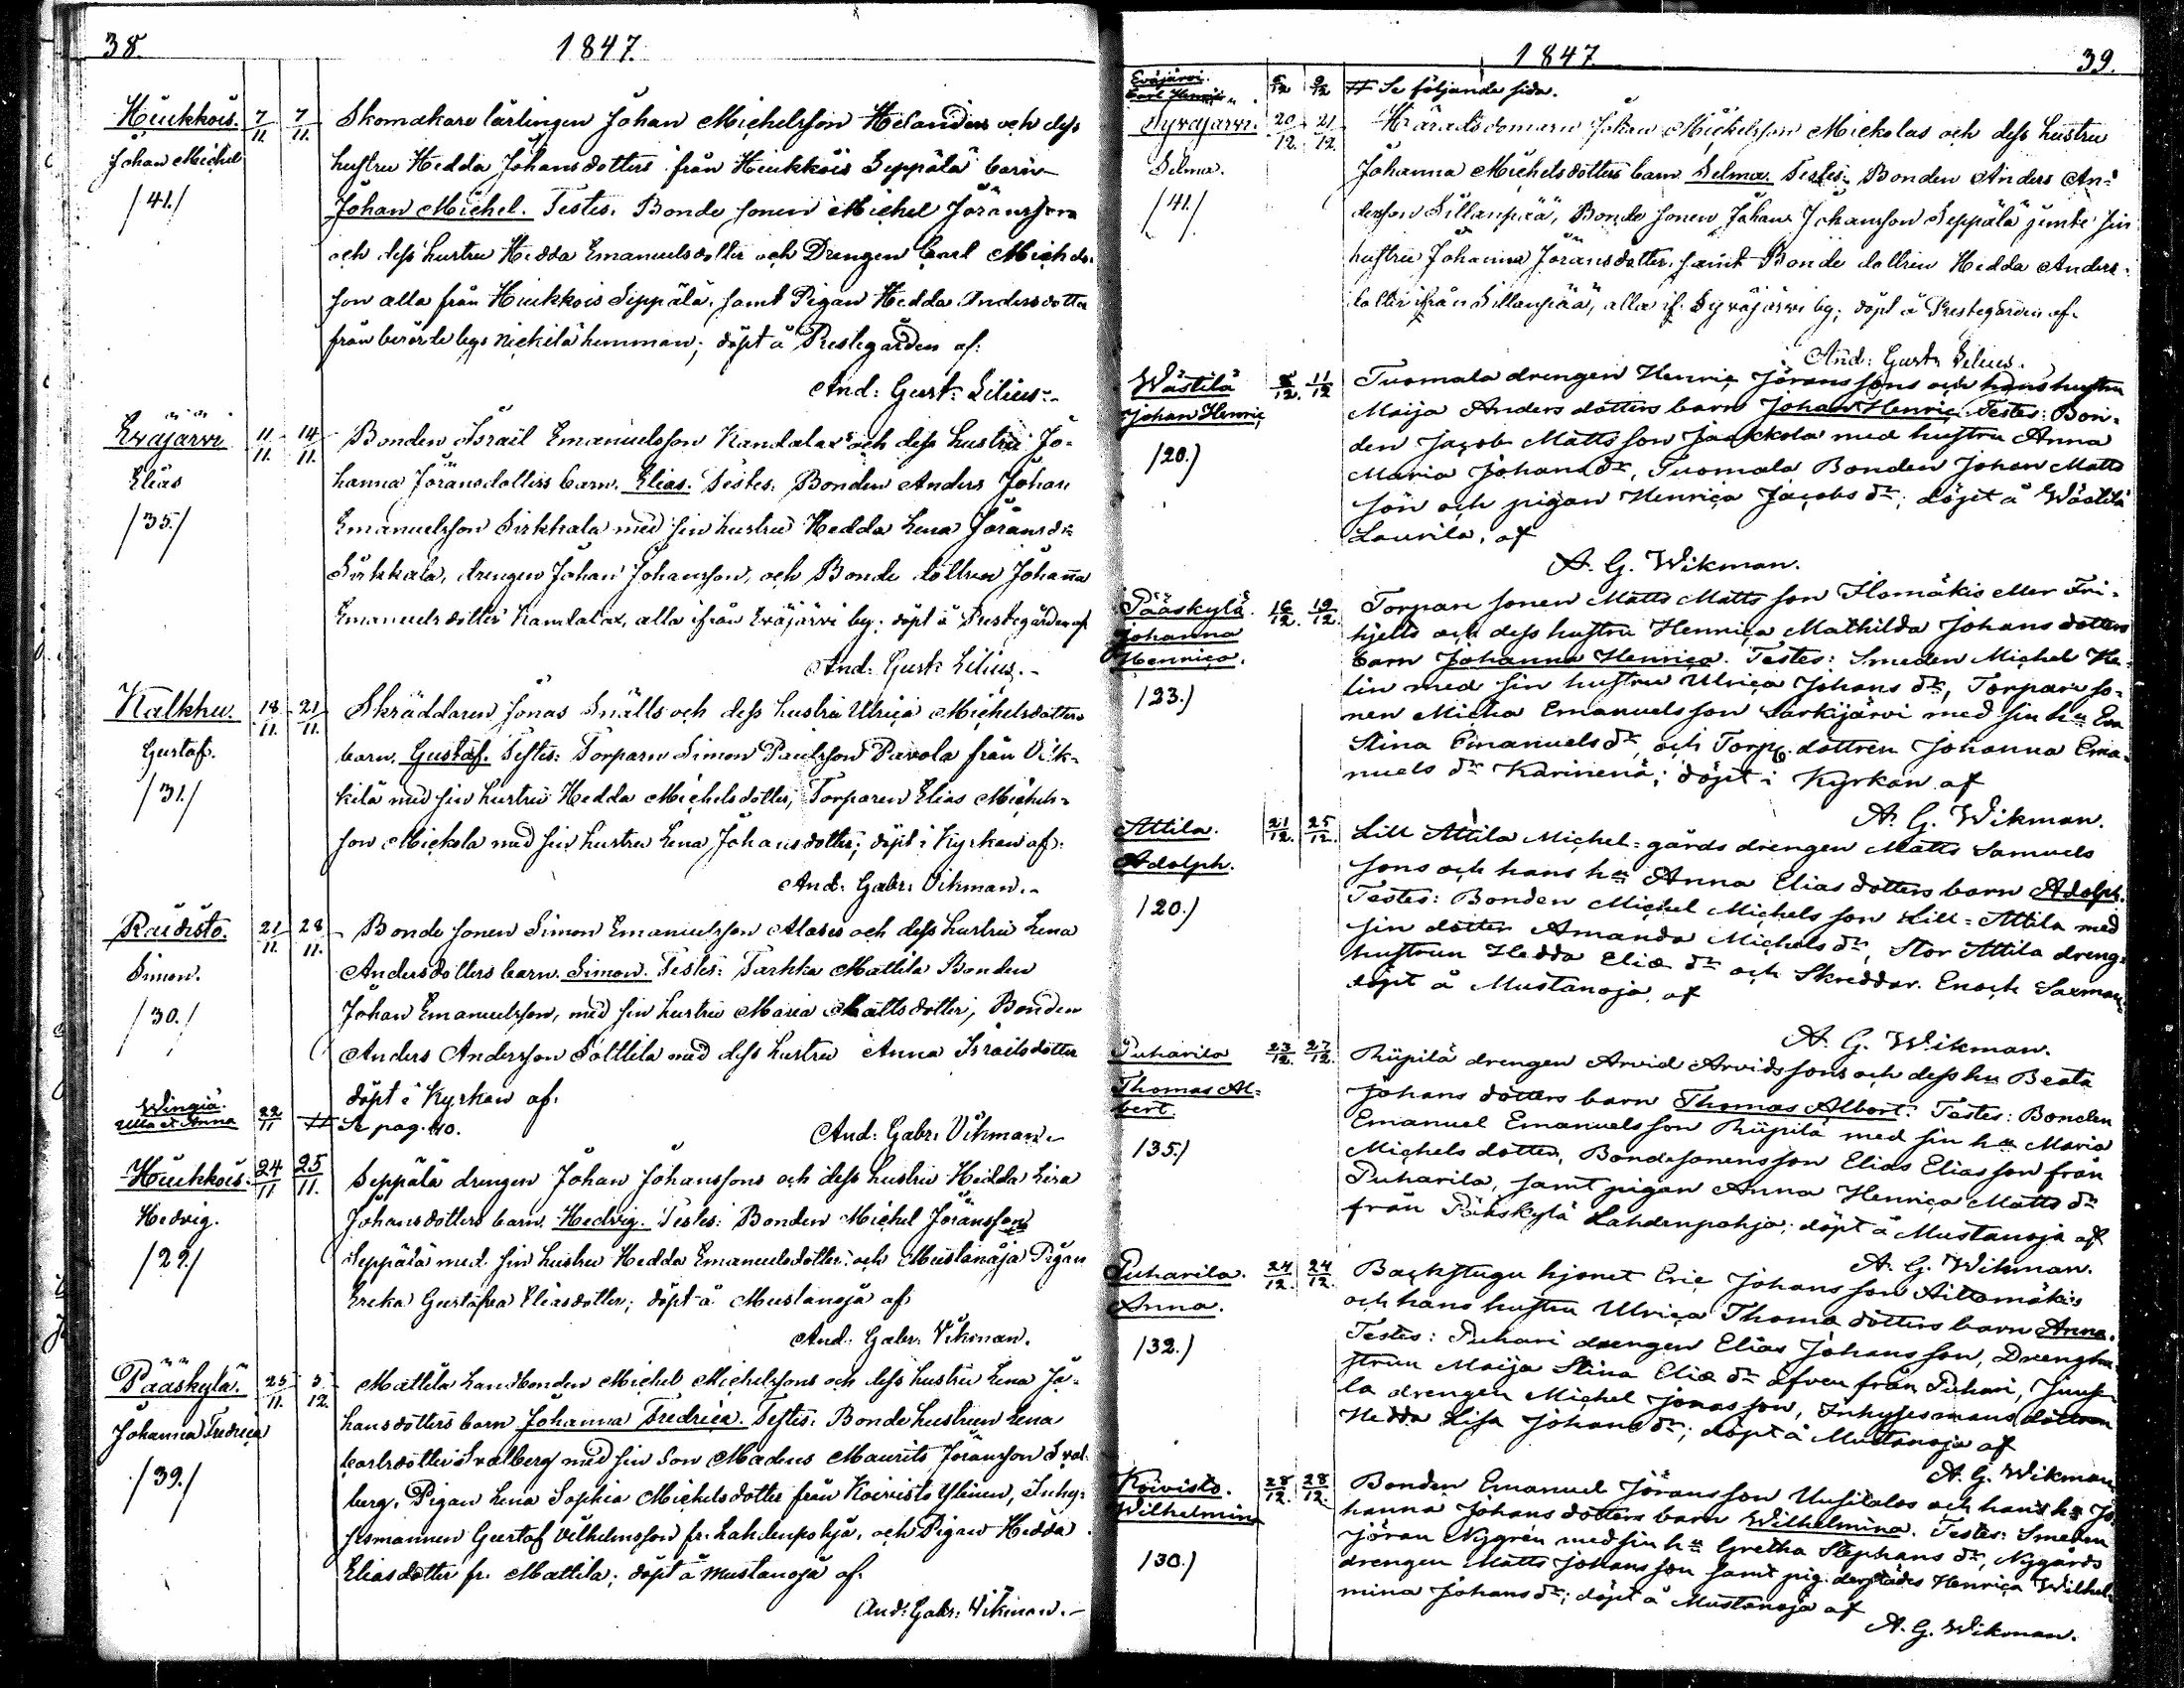 38.
1847.
Hiukkois. 7/11. 7/11. Skomakare lärlingen Johan Michelsson Helanders och dess
Johan Michel hustru Hedda Johansdotters från Hiukkois Seppälä barn
/41./ Johan Michel. Testes. Bonde sonen Michel Jöransson
och dess hustru Hedda Emanuelsdotter och Drengen Carl Michels-
son alla från Hiukkois Seppälä, samt Pigan Hedda Andersdotter
från berörde bys Nickilä hemman; döpt å Prestegården af:
And: Gust: Lilius.
Eväjärvi 11/11. 14/11. Bonden Israël Emanuelsson Kandalax och dess hustru Jo-
Elias hanna Jöransdotters barn. Elias. Testes. Bonden Anders Johan
/35./ Emanuelsson Sirkkala med sin hustru Hedda Lena Jöransdr
Sirkkala, drengen Johan Johansson, och Bonde dottren Johanna
Emanuelsdotter Kandalax, alla ifrån Eväjärvi by; döpt å Prestegården af
And: Gust: Lilius.
Kalkku. 18/11. 21/11. Skräddaren Jonas Snälls och dess hustru Ulrica Michelsdotters
Gustaf. barn. Gustaf. Testes: Torparn Simon Paulsson Pavola från Vik-
/31./ kilä med sin hustru Hedda Michelsdotter, Torparen Elias Michels-
son Mickola med sin hustru Lena Johansdotter; döpt i Kyrkan af:
And: Gabr: Vikman.
Raudisto. 21/11. 28/11. Bonde sonen Simon Emanuelsson Alases och dess hustru Lena
Simon. Andersdotters barn. Simon. Testes: Tarkka Mattila Bonden
/30./ Johan Emanuelsson, med sin hustru Maria Mattsdotter, Bonden
Anders Andersson Sölttilä med dess hustru Anna Israelsdotter
döpt i Kyrkan af.
Wingiä. Ulla et Anna 22/11 # Se pag. 40.
And: Gabr: Vikman.
Hiukkois. 24/11 25/11. Seppälä drengen Johan Johanssons och dess hustru Hedda Lisa
Hedvig. Johansdotters barn. Hedvig. Testes: Bonden Michel Jöransson
/29./ Seppälä med sin hustru Hedda Emanuelsdotter, och Mustanåja Pigan
Ereka Gustafva Eliasdotter; döpt å Mustanoja af
And: Gabr: Vikman.
Pääskylä. 25/11. 5/12. Mattila Landbonden Michel Michelssons och dess hustru Lena Jo-
Johanna Fredrica hansdotters barn Johanna Fredrica. Testes: Bonde hustrun Lena
/39./ Carlsdotter Svalberg med sin Son Madeus Maurits Jöransson Sval-
berg, Pigan Lena Sophia Michelsdotter från Koivisto Ylinen, Inhy-
sesmannen Gustaf Vilhelmsson fr. Lahdenpohja, och Pigan Hedda
Eliasdotter fr. Mattila; döpt å Mustanoja af:
And: Gabr: Vikman.
1847
39.
Eväjärvi. Carl Henric 5/12 9/12 # Se följande sida.
Syväjärvi. 20/12. 21/12. Häradsdomaren Johan Michelsson Mickolas och dess hustru
Selma. Johanna Michelsdotters barn Selma. Testes: Bonden Anders An-
/41./ dersson Sillanpää, Bonde sonen Johan Johansson Seppälä jemte sin
hustru Johanna Jöransdotter, samt Bonde dottren Hedda Anders-
dotter ifrån Sillanpää, alla if. Syväjärvi by; döpt å Prestegården af.
And: Gust: Lilius.
Wästilä 8/12. 11/12 Tuomala drengen Henric Jöranssons och hans hustru
Johan Henric Maija Anders dotters barn Johan Henric. Testes: Bon-
/20./ den Jacob Mattsson Jaakkola med hustru Anna
Maria Johansdr, Tuomala Bonden Johan Matts
son och pigan Henrica Jacobs dr; döpt å Wästilä
Laurila, af
A. G. Wikman.
Pääskylä. 16/12. 19/12. Torpare sonen Matts Mattsson Ilomäkis eller Fri-
Johanna hjelts och dess hustru Henrica Mathilda Johans dotters
Henrica. barn Johanna Henrica. Testes: Smeden Michel He-
/23./ lin med sin hustru Ulrica Johans dr, Torpare so-
nen Micha Emanuelsson Särkijärvi med sin hu Eva
Stina Emanuels dr, och Torp. dottren Johanna Ema-
nuels dr Karinenä; döpt i Kyrkan af
A. G. Wikman.
Attila. 21/12. 25/12. Lill Attila Michel-gårds drengen Matts Samuels
Adolph. sons och hans hu Anna Elias dotters barn Adolph.
/20./ Testes: Bonden Michel Michelsson Lill-Attila med
sin dotter Amanda Michels dr, Stor Attila dreng-
hustrun Hedda Eliæ dr och Skreddar. Enoch Saxman,
döpt å Mustanoja, af
A. G. Wikman.
Puharila 23/12. 27/12. Riipilä drengen Arvid Arvidssons och dess hu Beata
Thomas Al- Johans dotters barn Thomas Albert. Testes: Bonden
bert. Emanuel Emanuelsson Riipilä med sin hu Maria
/35./ Michels dotter, Bondesonens son Elias Eliasson från
Puharila, samt pigan Anna Henrica Matts dr
från Pääskylä Lahdenpohja; döpt å Mustanoja af
A. G. Wikman.
Puharila. 24/12. 24/12. Backstugu hjonet Eric Johansson Aittomäkis
Anna. och hans hustru Ulrica Thomæ dotters barn Anna.
/32./ Testes: Puhari drengen Elias Johansson, Drenghu-
strun Maija Stina Eliæ dr äfven från Puhari, Junse-
la drengen Michel Jonasson, Inhysesmans dottren
Hedda Lisa Johans dr; döpt å Mustanoja af
A. G. Wikman
Koivisto. 28/12. 28/12. Bonden Emanuel Jöransson Uusitalos och hans hu Jo-
Wilhelmina hanna Johans dotters barn Wilhelmina. Testes: Smeden
/30./ Jöran Nygrén med sin hu Gretha Stephans dr, Nygårds
drengen Matts Johansson samt pig. derstädes Henrica Wilhel-
mina Johans dr; döpt å Mustanoja af
A. G. Wikman.